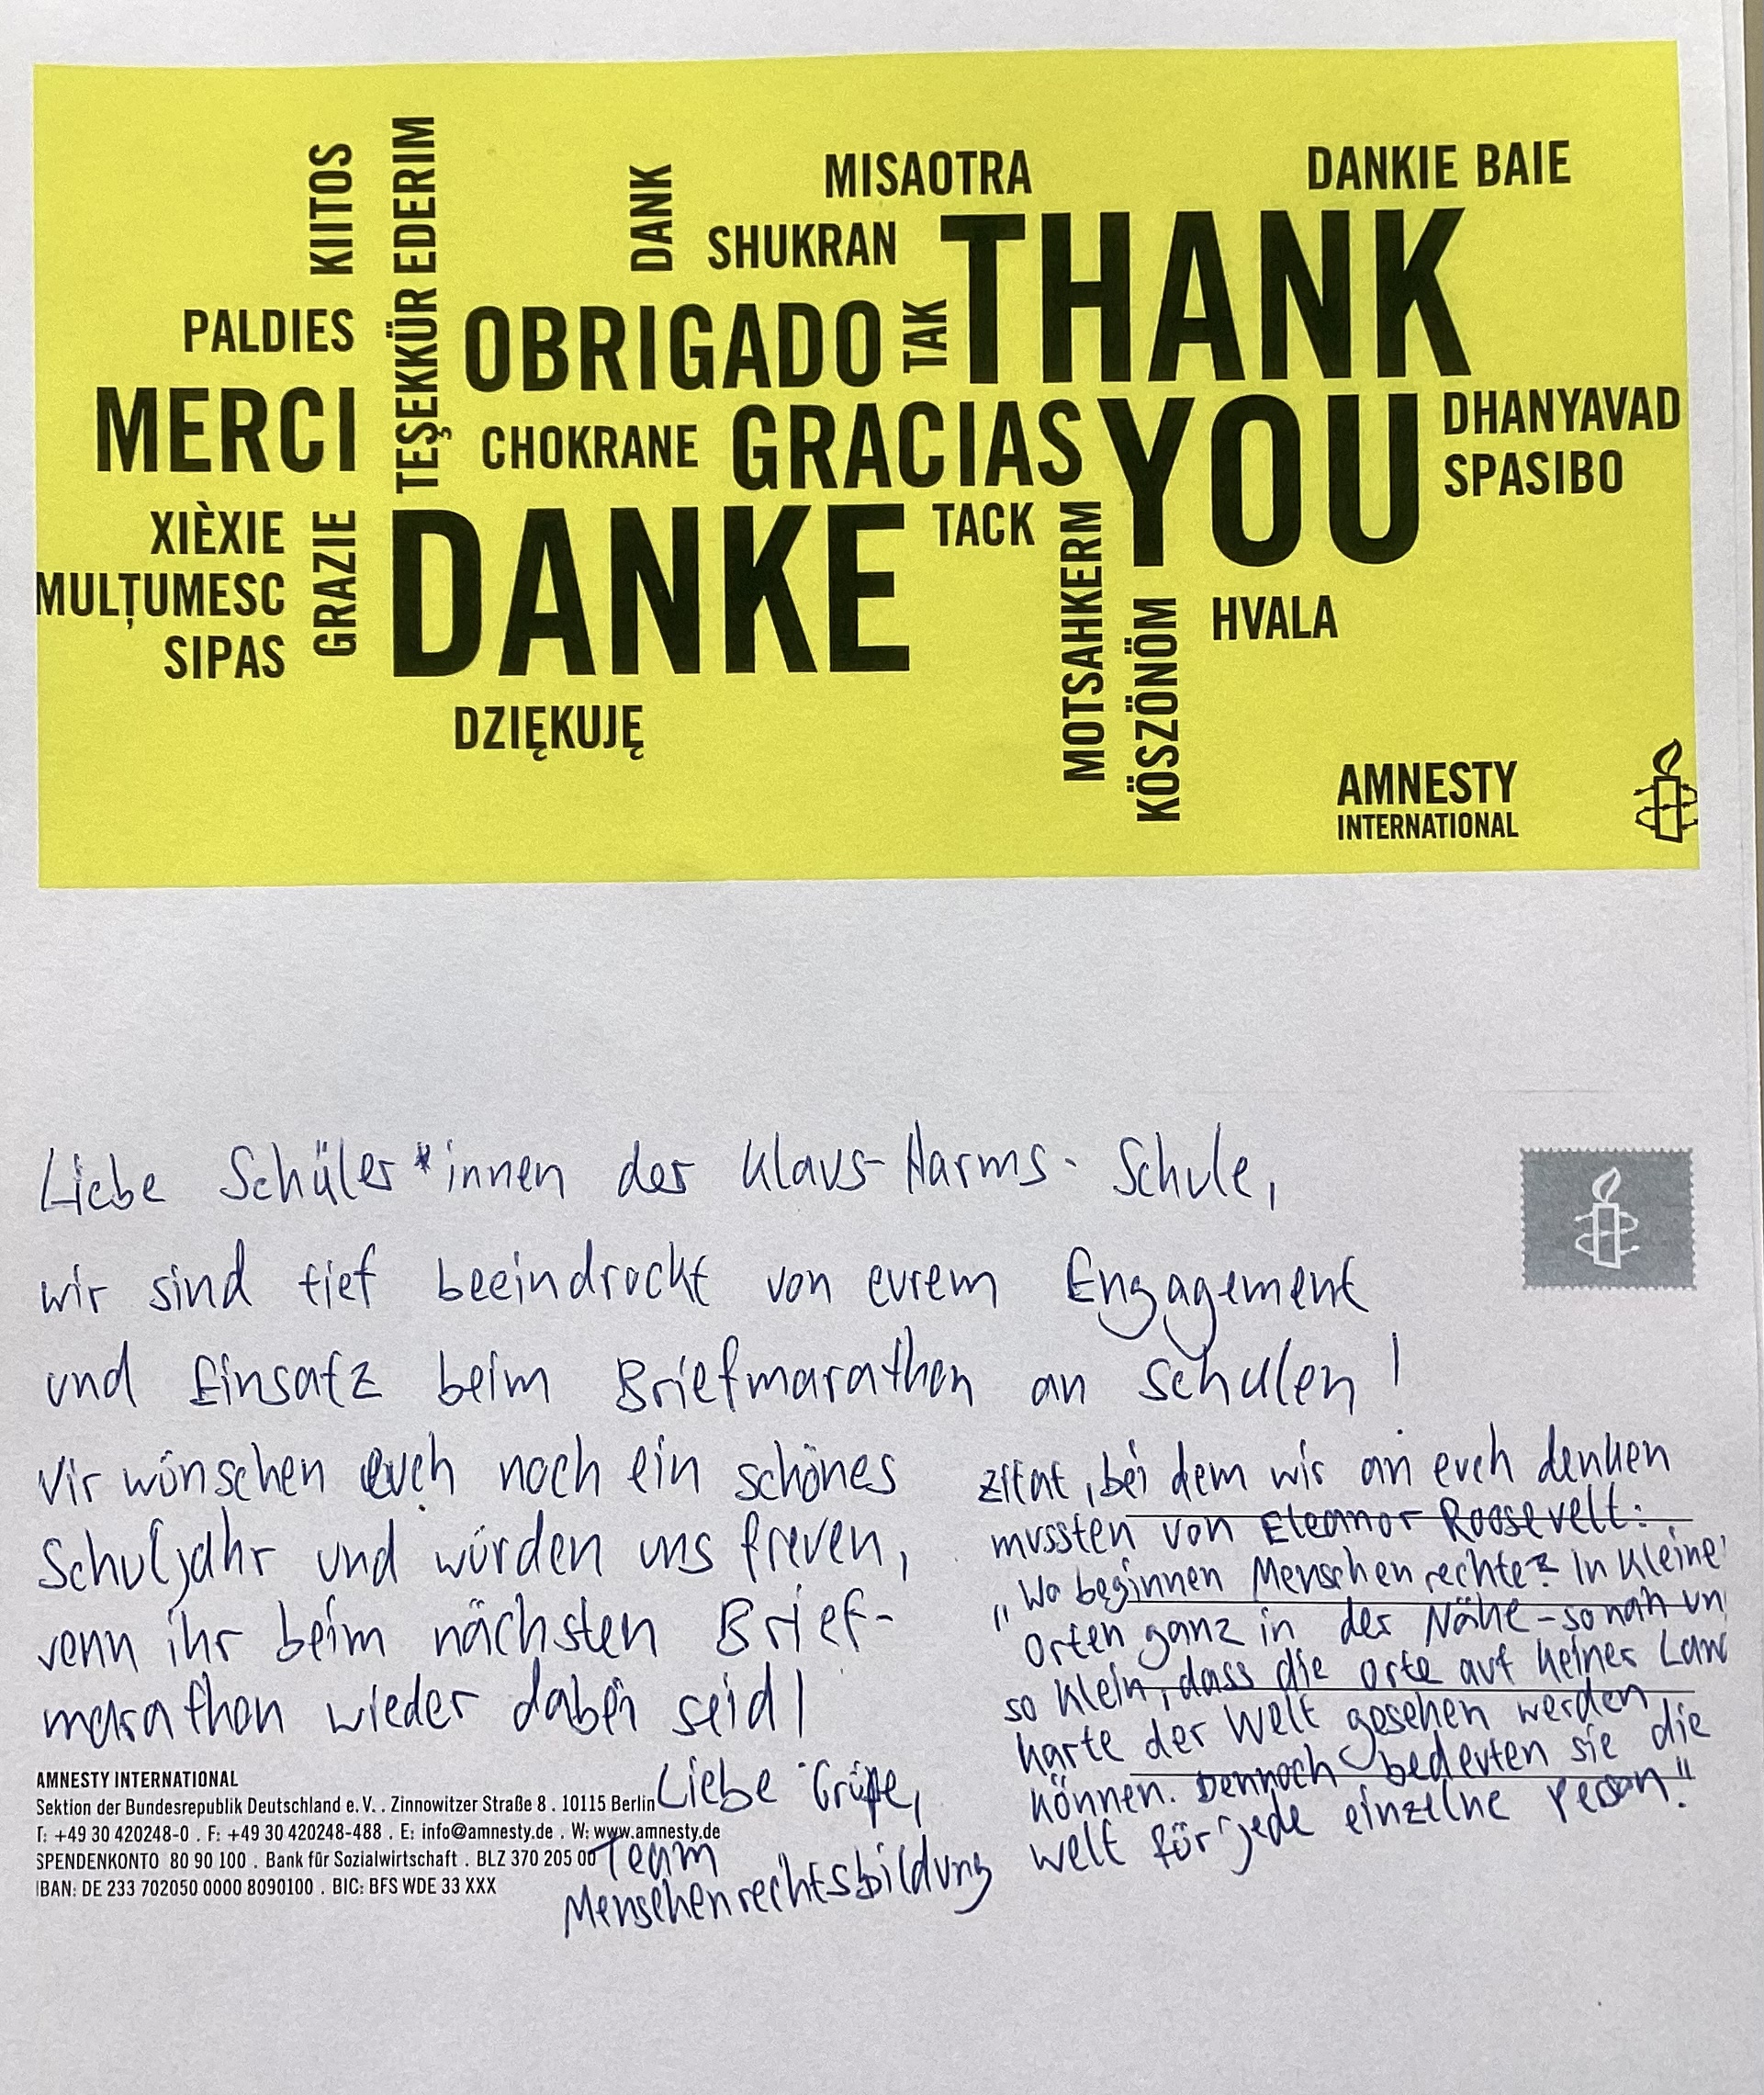 KIITOS
TEŞEKKÜR EDERIM
DANK
MISAOTRA
DANKIE BAIE
SHUKRAN
THANK
PALDIES
OBRIGADO
TAK
MERCI
CHOKRANE
GRACIAS
YOU
DHANYAVAD
SPASIBO
XIÈXIE
GRAZIE
DANKE
TACK
MOTSAHKERM
MULȚUMESC
SIPAS
KÖSZÖNÖM
HVALA
DZIĘKUJĘ
AMNESTY
INTERNATIONAL
Liebe Schüler*innen der Klaus-Harms-Schule,
wir sind tief beeindruckt von eurem Engagement
und Einsatz beim Briefmarathon an Schulen!
Wir wünschen euch noch ein schönes
Schuljahr und würden uns freuen,
wenn ihr beim nächsten Brief-
marathon wieder dabei seid!
Liebe Grüße,
Team
Menschenrechtsbildung
Zitat, bei dem wir an euch denken
mussten von Eleanor Roosevelt:
"Wo beginnen Menschenrechte? In kleine
Orten ganz in der Nähe - so nah un
so klein, dass die Orte auf keiner Lan
karte der Welt gesehen werden
können. Dennoch bedeuten sie die
Welt für jede einzelne Person."
AMNESTY INTERNATIONAL
Sektion der Bundesrepublik Deutschland e. V. . Zinnowitzer Straße 8 . 10115 Berlin
T: +49 30 420248-0 . F: +49 30 420248-488 . E: info@amnesty.de . W: www.amnesty.de
SPENDENKONTO 80 90 100 . Bank für Sozialwirtschaft . BLZ 370 205 00
IBAN: DE 233 702050 0000 8090100 . BIC: BFS WDE 33 XXX